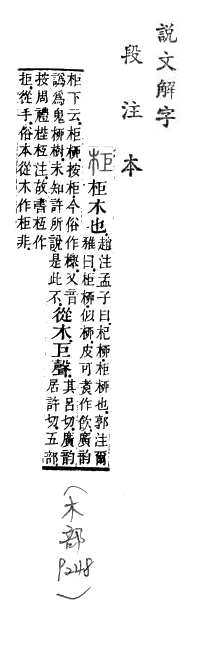 説文解字
段注本
柜 柜木也.
趙注孟子曰.杞柳.柜柳也.郭注爾
雅曰.柜柳似柳.皮可煮作飲.廣韵
柜下云.柜柳.按柜今俗作櫸.又音
譌爲鬼柳樹.未知許所說是此不.
從木巨聲.
其呂切.廣韵
居許切.五部.
按周禮梐枑注.故書枑作
拒.從手.俗本從木作柜.非.
(木部
P248)